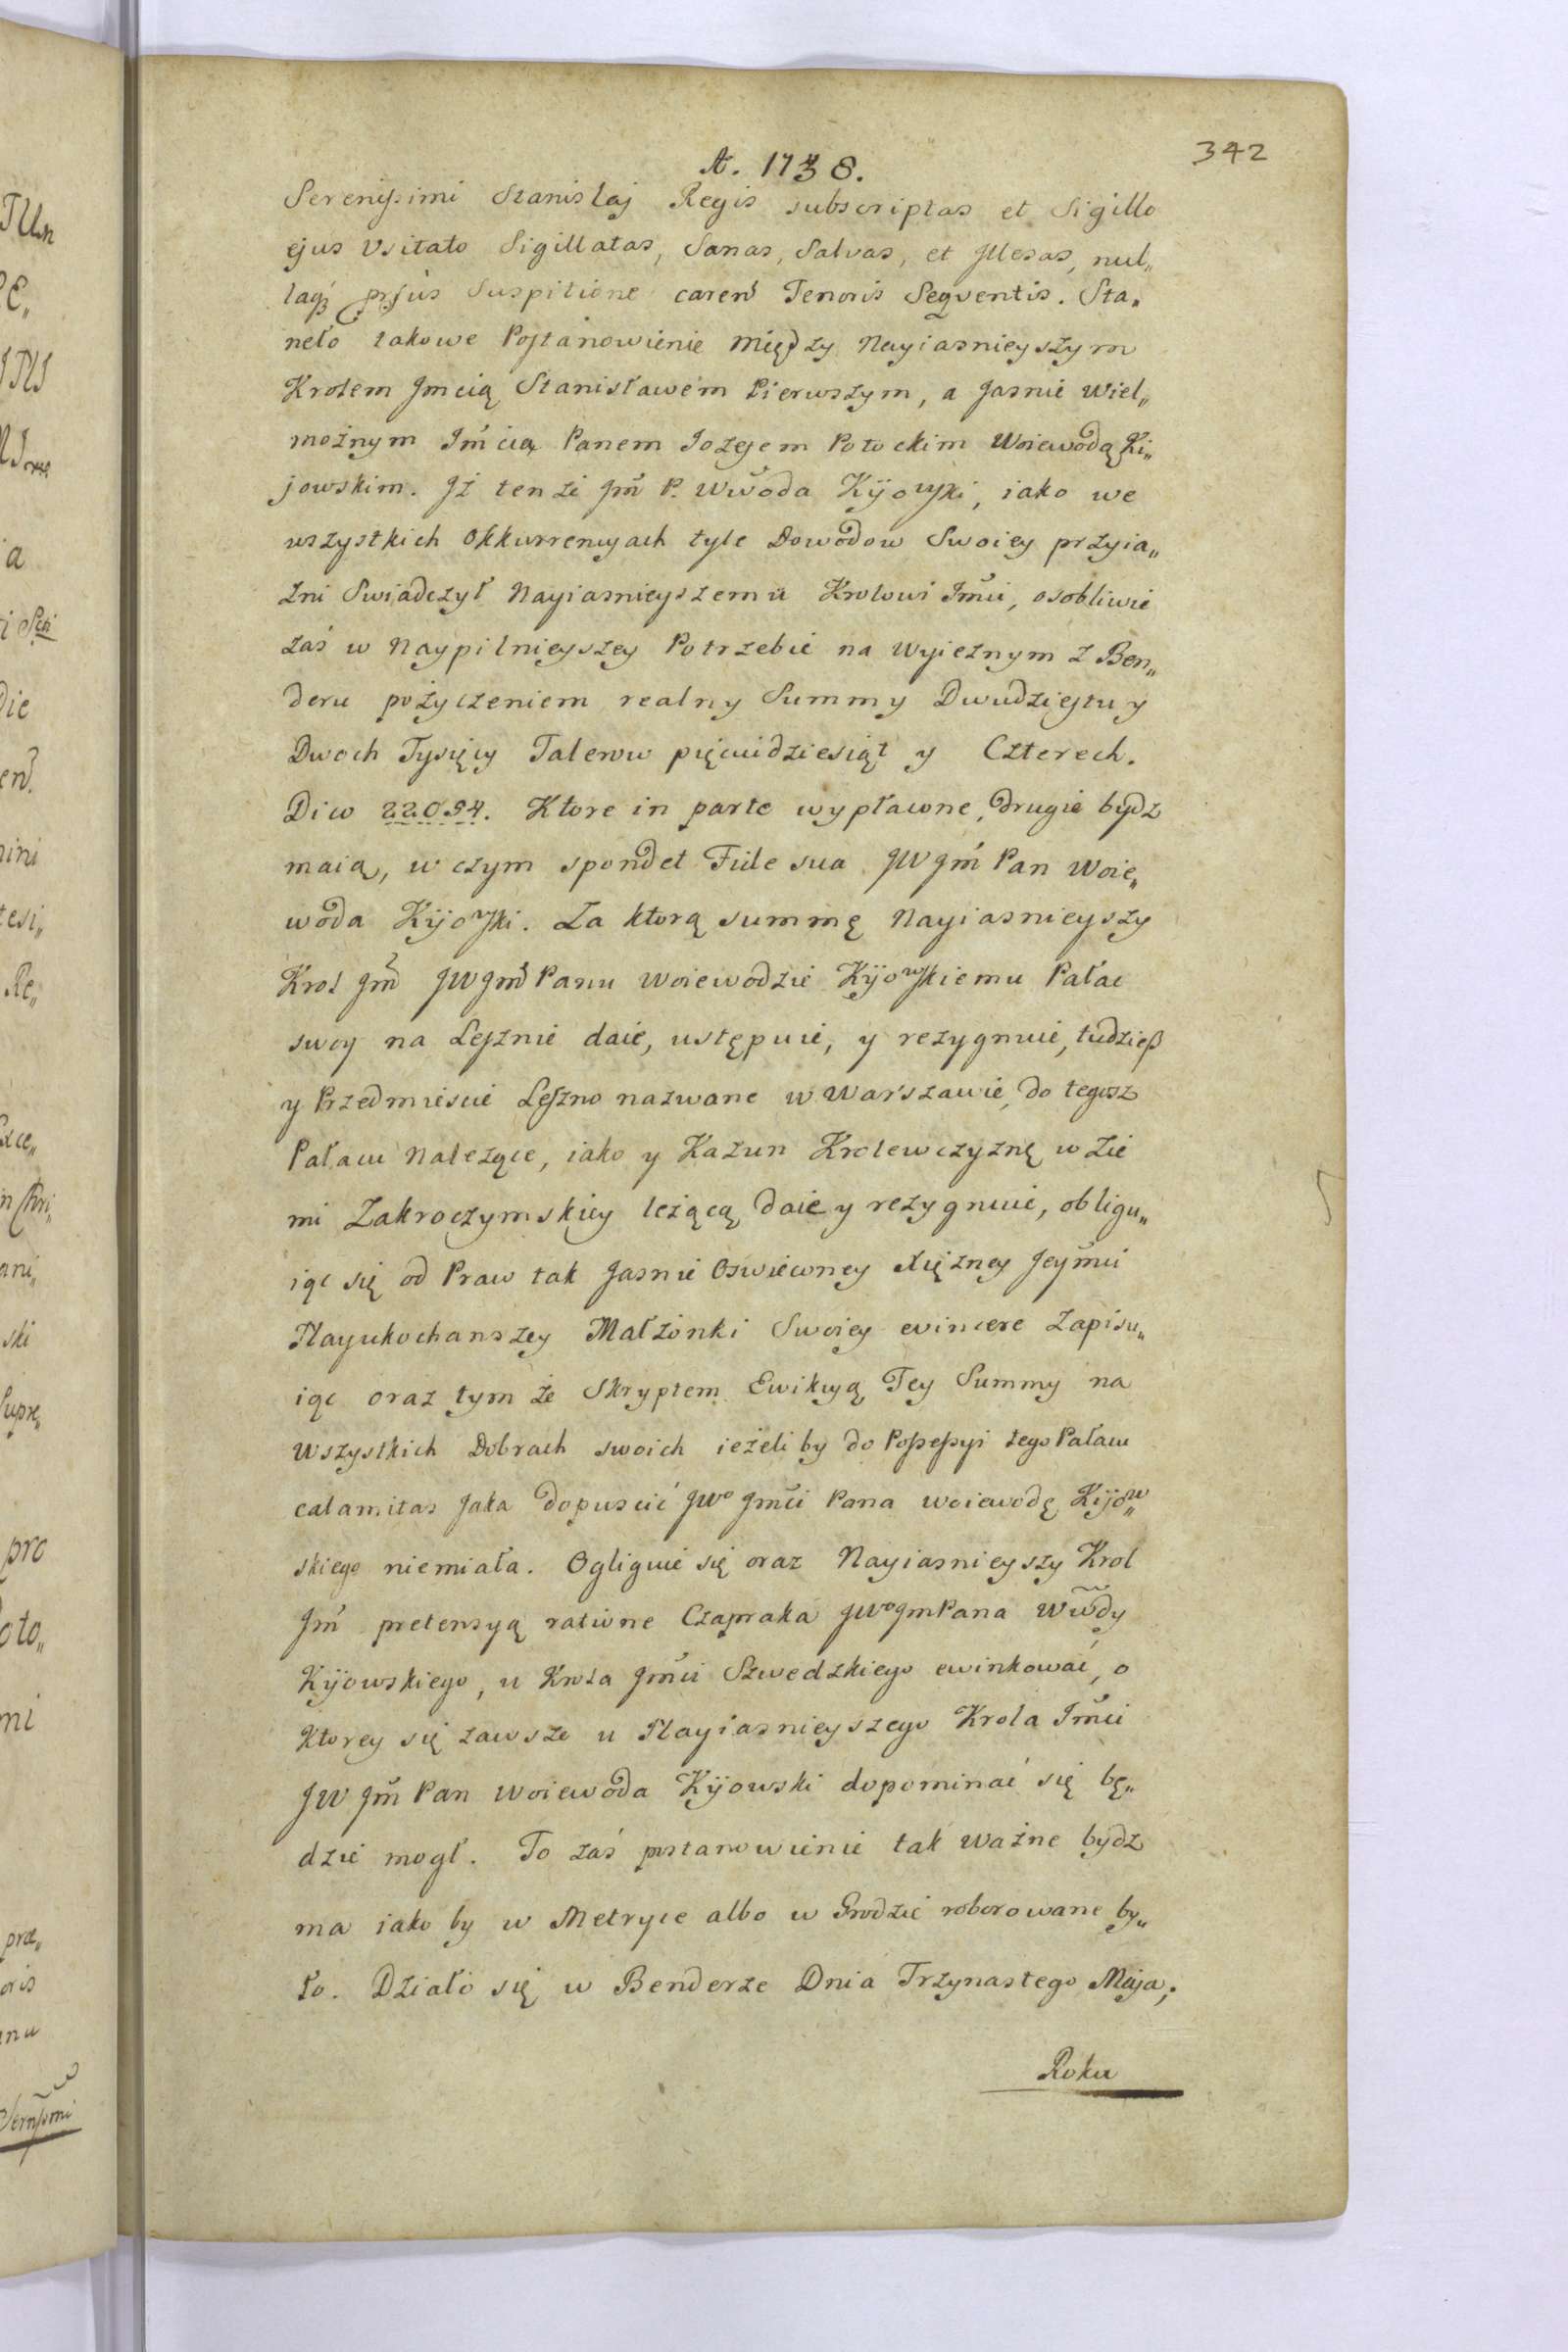 342
A. 1738.
Sereniſsimi Stanislaj Regis subscriptas et Sigillo
ejus Usitato Sigillatas, Sanas, Salvas, et Jllesas, nul„
laqꝫ prjus Suspitione careñ Tenoris Seqventis. Sta„
neło takowe Poſtanowienie między Nayiasnieyszym
Krolem Jmcią Stanisławem Pierwszym, a Jasnie Wiel„
możnym Jm̃cią Panem Jozefem Potockim Woiewodą Ki„
jowskim. Jż tenże Jm̃ P. Wwoda Kijowſki, iako we
wszystkich Okkurrencyach tyle Dowodow Swoiey przyia„
zni Swiadczył Nayiasnieyszemu Krolowi Jm̃ci, osobliwie
zaś w Naypilnieyszey Potrzebie na Wyieznym z Ben„
deru pożyczeniem realny Summy Dwudzieſtu y
Dwoch Tysięcy Talerow pięcidziesiąt y Czterech.
Dico 22054. Ktore in parte wypłacone, drugie bydz
maią, w czym spondet Fide sua JW Jm̃ Pan Woie„
woda Kijowſki. Za ktorą summę Nayiasnieyszy
Krol Jm̃ JWJm̃ Panu Woiewodzie Kijowſkiemu Pałac
swoy na Leſznie daie, ustępuie, y rezygnuie, tudzieß
y Przedmiescie Leſzno nazwane w Warszawie, do tegosz
Pałacu Należące, iako y Kazun Krolewczyznę w Zie
mi Zakroczymskiey leżącą daie y rezygnuie, obligu„
iąc się od Praw tak Jasnie Oswiecon̄ey Xiężney Jeym̃ci
Nayukochanszey Małżonki Swoiey evincere Zapisu„
iąc oraz tym że Skryptem Ewikcyą Tey Summy na
Wszystkich Dobrach swoich ieżeli by do Poſseſsyi tego Pałacu
calamitas Jaka dopuscić JWo Jm̃ci Pana woiewodę Kijow„
skiego niemiała. Ogliguie się oraz Nayiasnieyszy Krol
Jm̃ pretensyą ratione Czapraka JWo Jm Pana Wwody
Kijowskiego, u Krola Jm̃ci Szwedzkiego ewinkować, o
ktorey się zawsze u Nayiasnieyszego Krola Jm̃ci
JW Jm̃ Pan Woiewoda Kijowski dopominać się bę„
dzie mogł. To zaś postanowienie tak ważne bydz
ma iako by w Metryce albo w Grodzie roborowane by„
ło. Działo się w Benderze Dnia Trzynastego Maja,
Roku